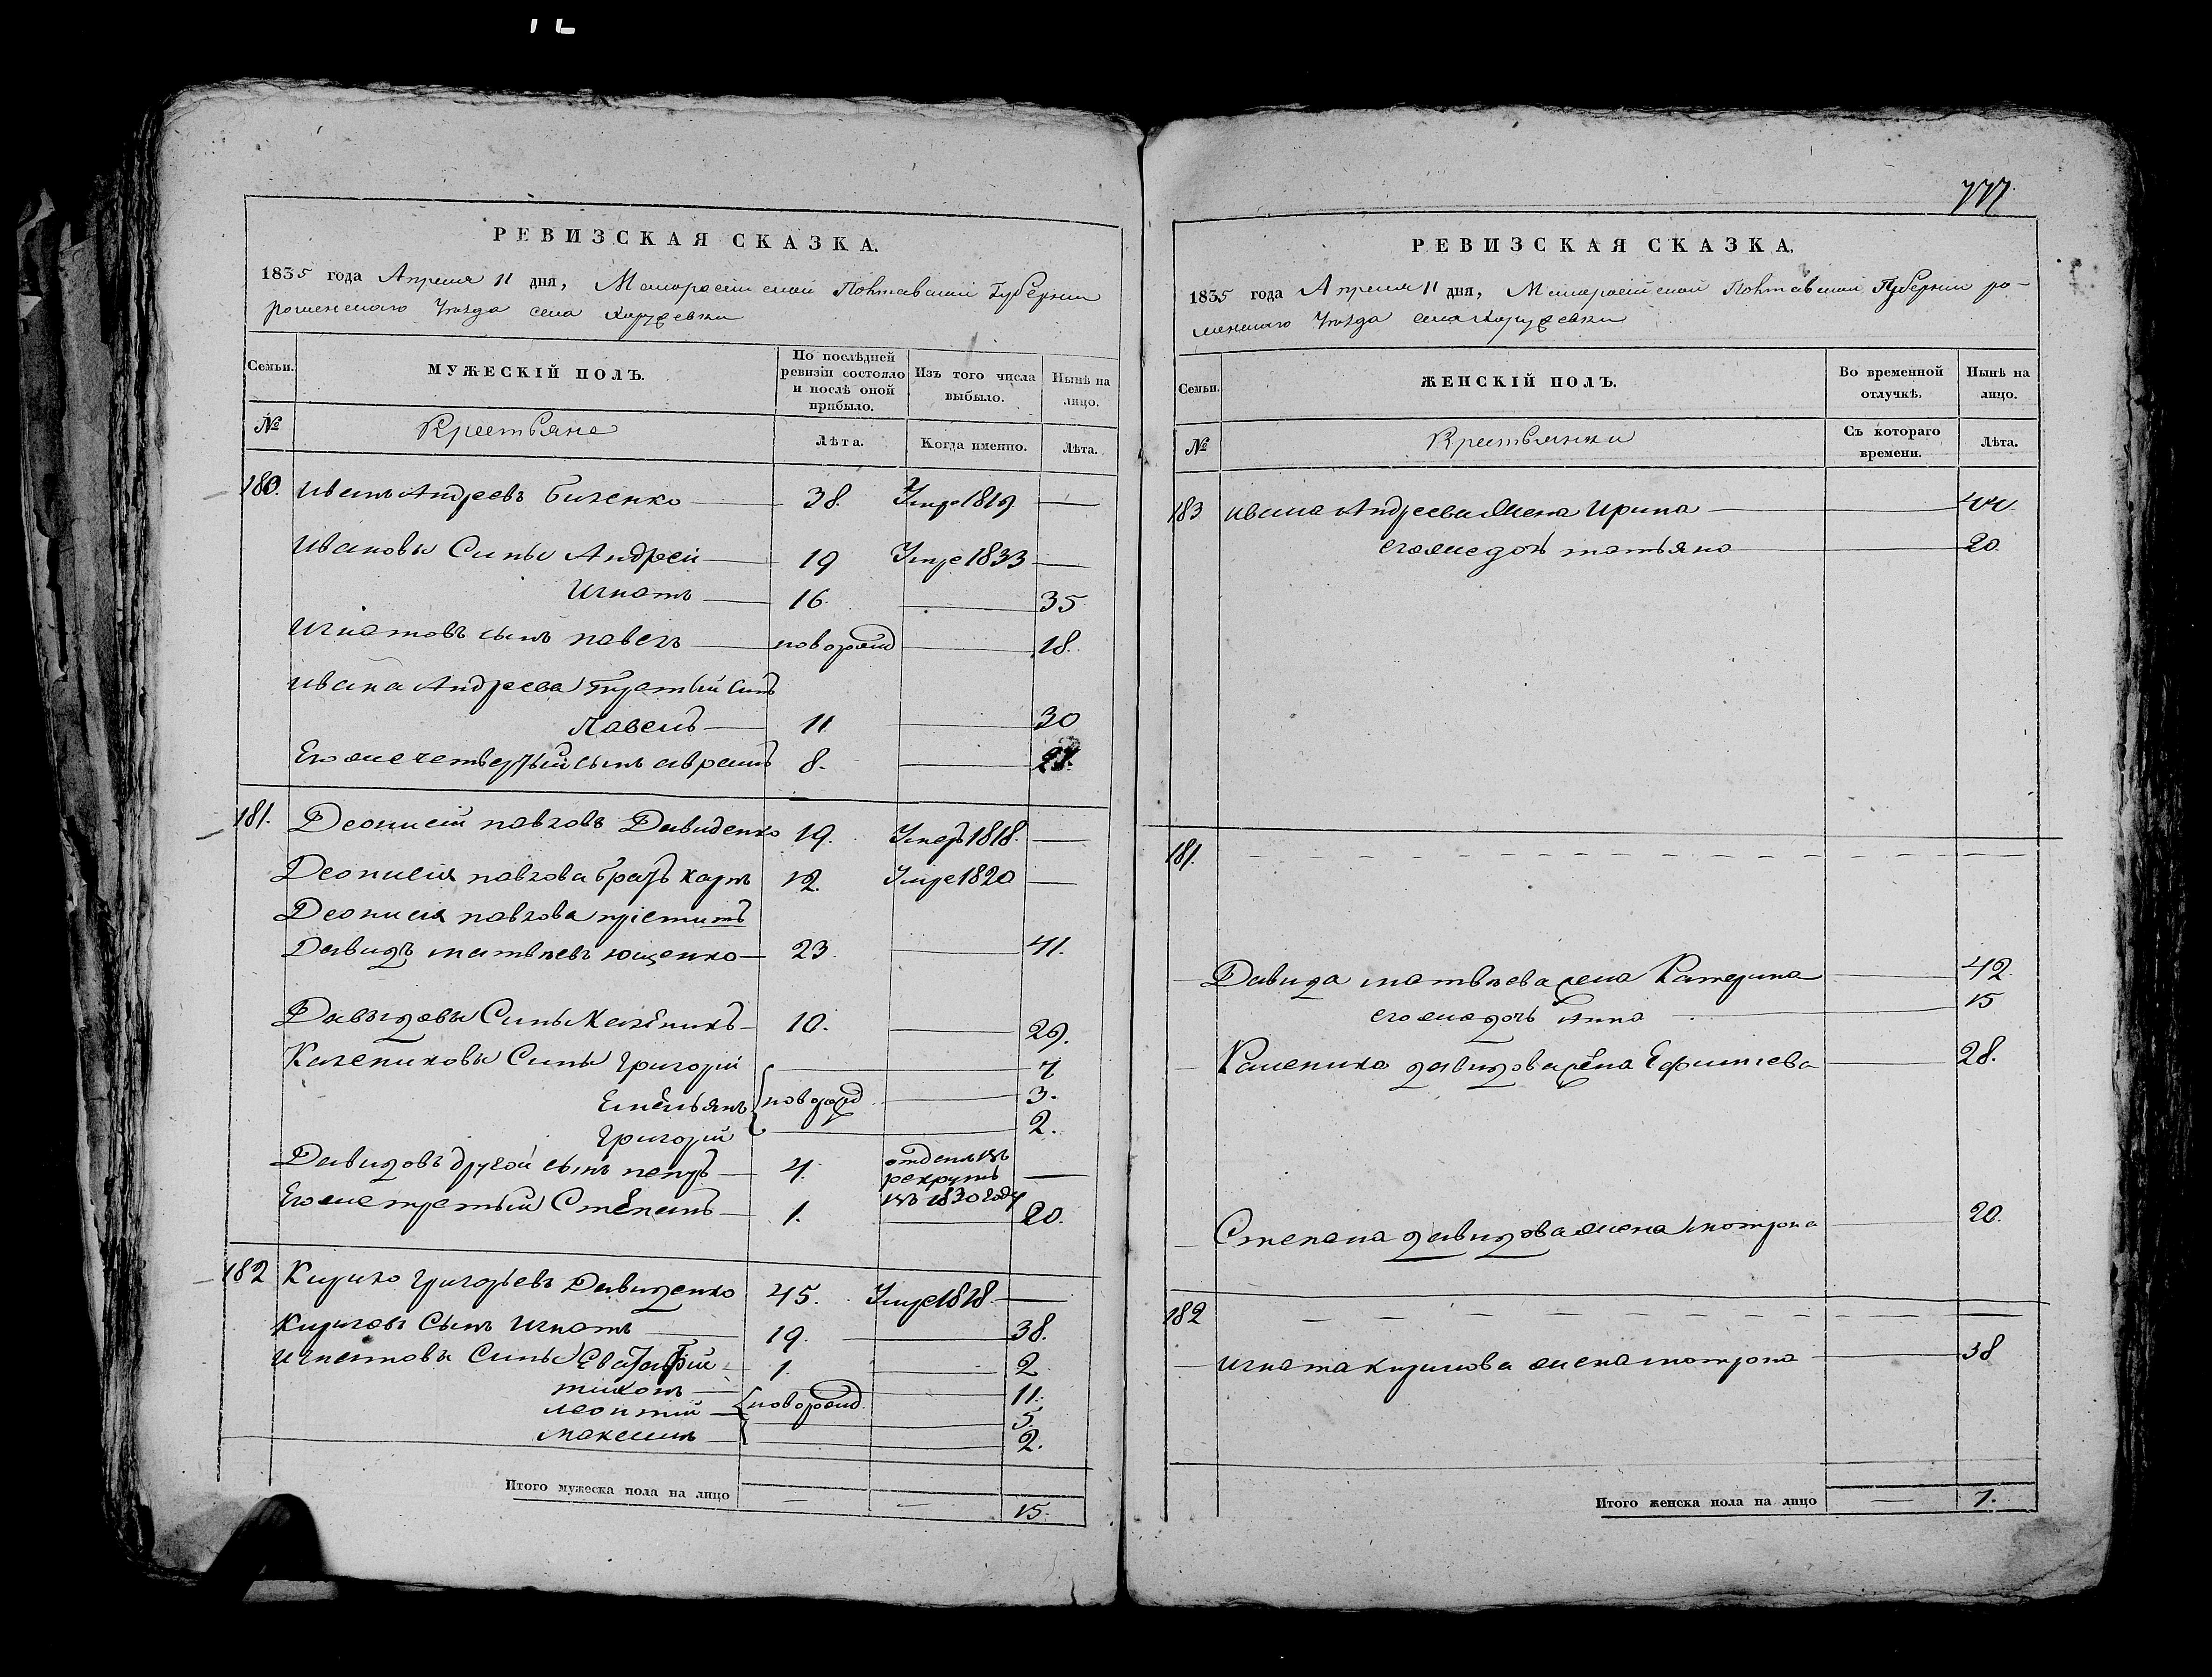 777
РЕВИЗСКАЯ СКАЗКА.
1835 года Апреля 11 дня, Малоросійской Полтавской Губерніи
роменского Уезда села
Семьи.
МУЖЕСКІЙ ПОЛЪ.
По послѣдней ревизіи состояло и послѣ оной прибыло.
Изъ того числа выбыло.
Нынѣ на лицо.
№
Крестьяне
Лѣта.
Когда именно.
Лѣта.
180. Иванъ Андреевъ 38. Умре 1819 —
Ивановы Сины Андрей 19 Умре 1833 —
Игнатъ 16. — 35
Игнатовъ сынъ павелъ новорожд — 18.
Ивана Андреева третый синъ
Павелъ 11 — 30
Его же четвертый сынъ 8. — 27.
181. Деонисій павловъ Давиденко 19. Умеръ 1818. —
Деонисія павлова братъ карпъ 12. Умре 1820 —
Деонисія павлова
Давидъ матвѣевъ ющенко 23. — 41.
Давыдовы Сины Каленикъ 10. — 29.
Калениковы Сины Григорій — 7
Емельянъ новорожд — 3.
Григорій — 2.
Давидовъ другой сынъ петръ 4. отданъ въ —
рекруты
въ 1830 году
Его же третый Степанъ 1. — 20.
182 Кирило Григорьевъ Давиденко 45. Умре 1818. —
Кириловъ Сынъ Игнатъ 19. — 38.
Игнатовы Сины 1. — 2
тихонъ — 11.
леонтій новорожд — 5.
максимъ — 2.
Итого мужеска пола на лицо — — 15.
РЕВИЗСКАЯ СКАЗКА.
1835 года Апреля 11 дня, Малоросійской Полтавской Губерніи ро-
менского Уезда села
Семьи.
ЖЕНСКІЙ ПОЛЪ.
Во временной отлучкѣ.
Нынѣ на лицо.
№
Крестьянки
Съ котораго времени.
Лѣта.
183 Ивана Андреева жена Ирина — 44
его же дочь татьяна — 20
181.
Давида матвѣева жена Катерина — 42.
его же дочь Анна — 15
Каленика давидова жена — 28.
Степана давидова жена мотрона — 20.
182
Игната кирилова жена мотрона — 38
Итого женска пола на лицо — 7.